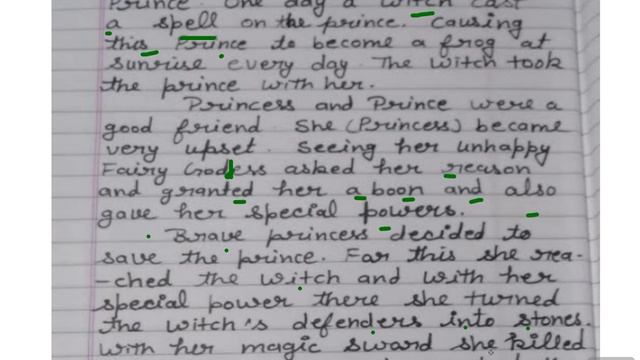 Prince. One day a witch cast
a spell on the prince. Causing
this Prince to become a frog at
sunrise every day. The witch took
the prince with her.
Princess and Prince were a
good friend. She (Princess) became
very upset. Seeing her unhappy
Fairy Godess asked her reason
and granted her a boon and also
gave her special powers.
Brave princess decided to
save the prince. For this she rea-
-ched the witch and with her
special power there she turned
the witch's defenders into stones.
with her magic sward she killed